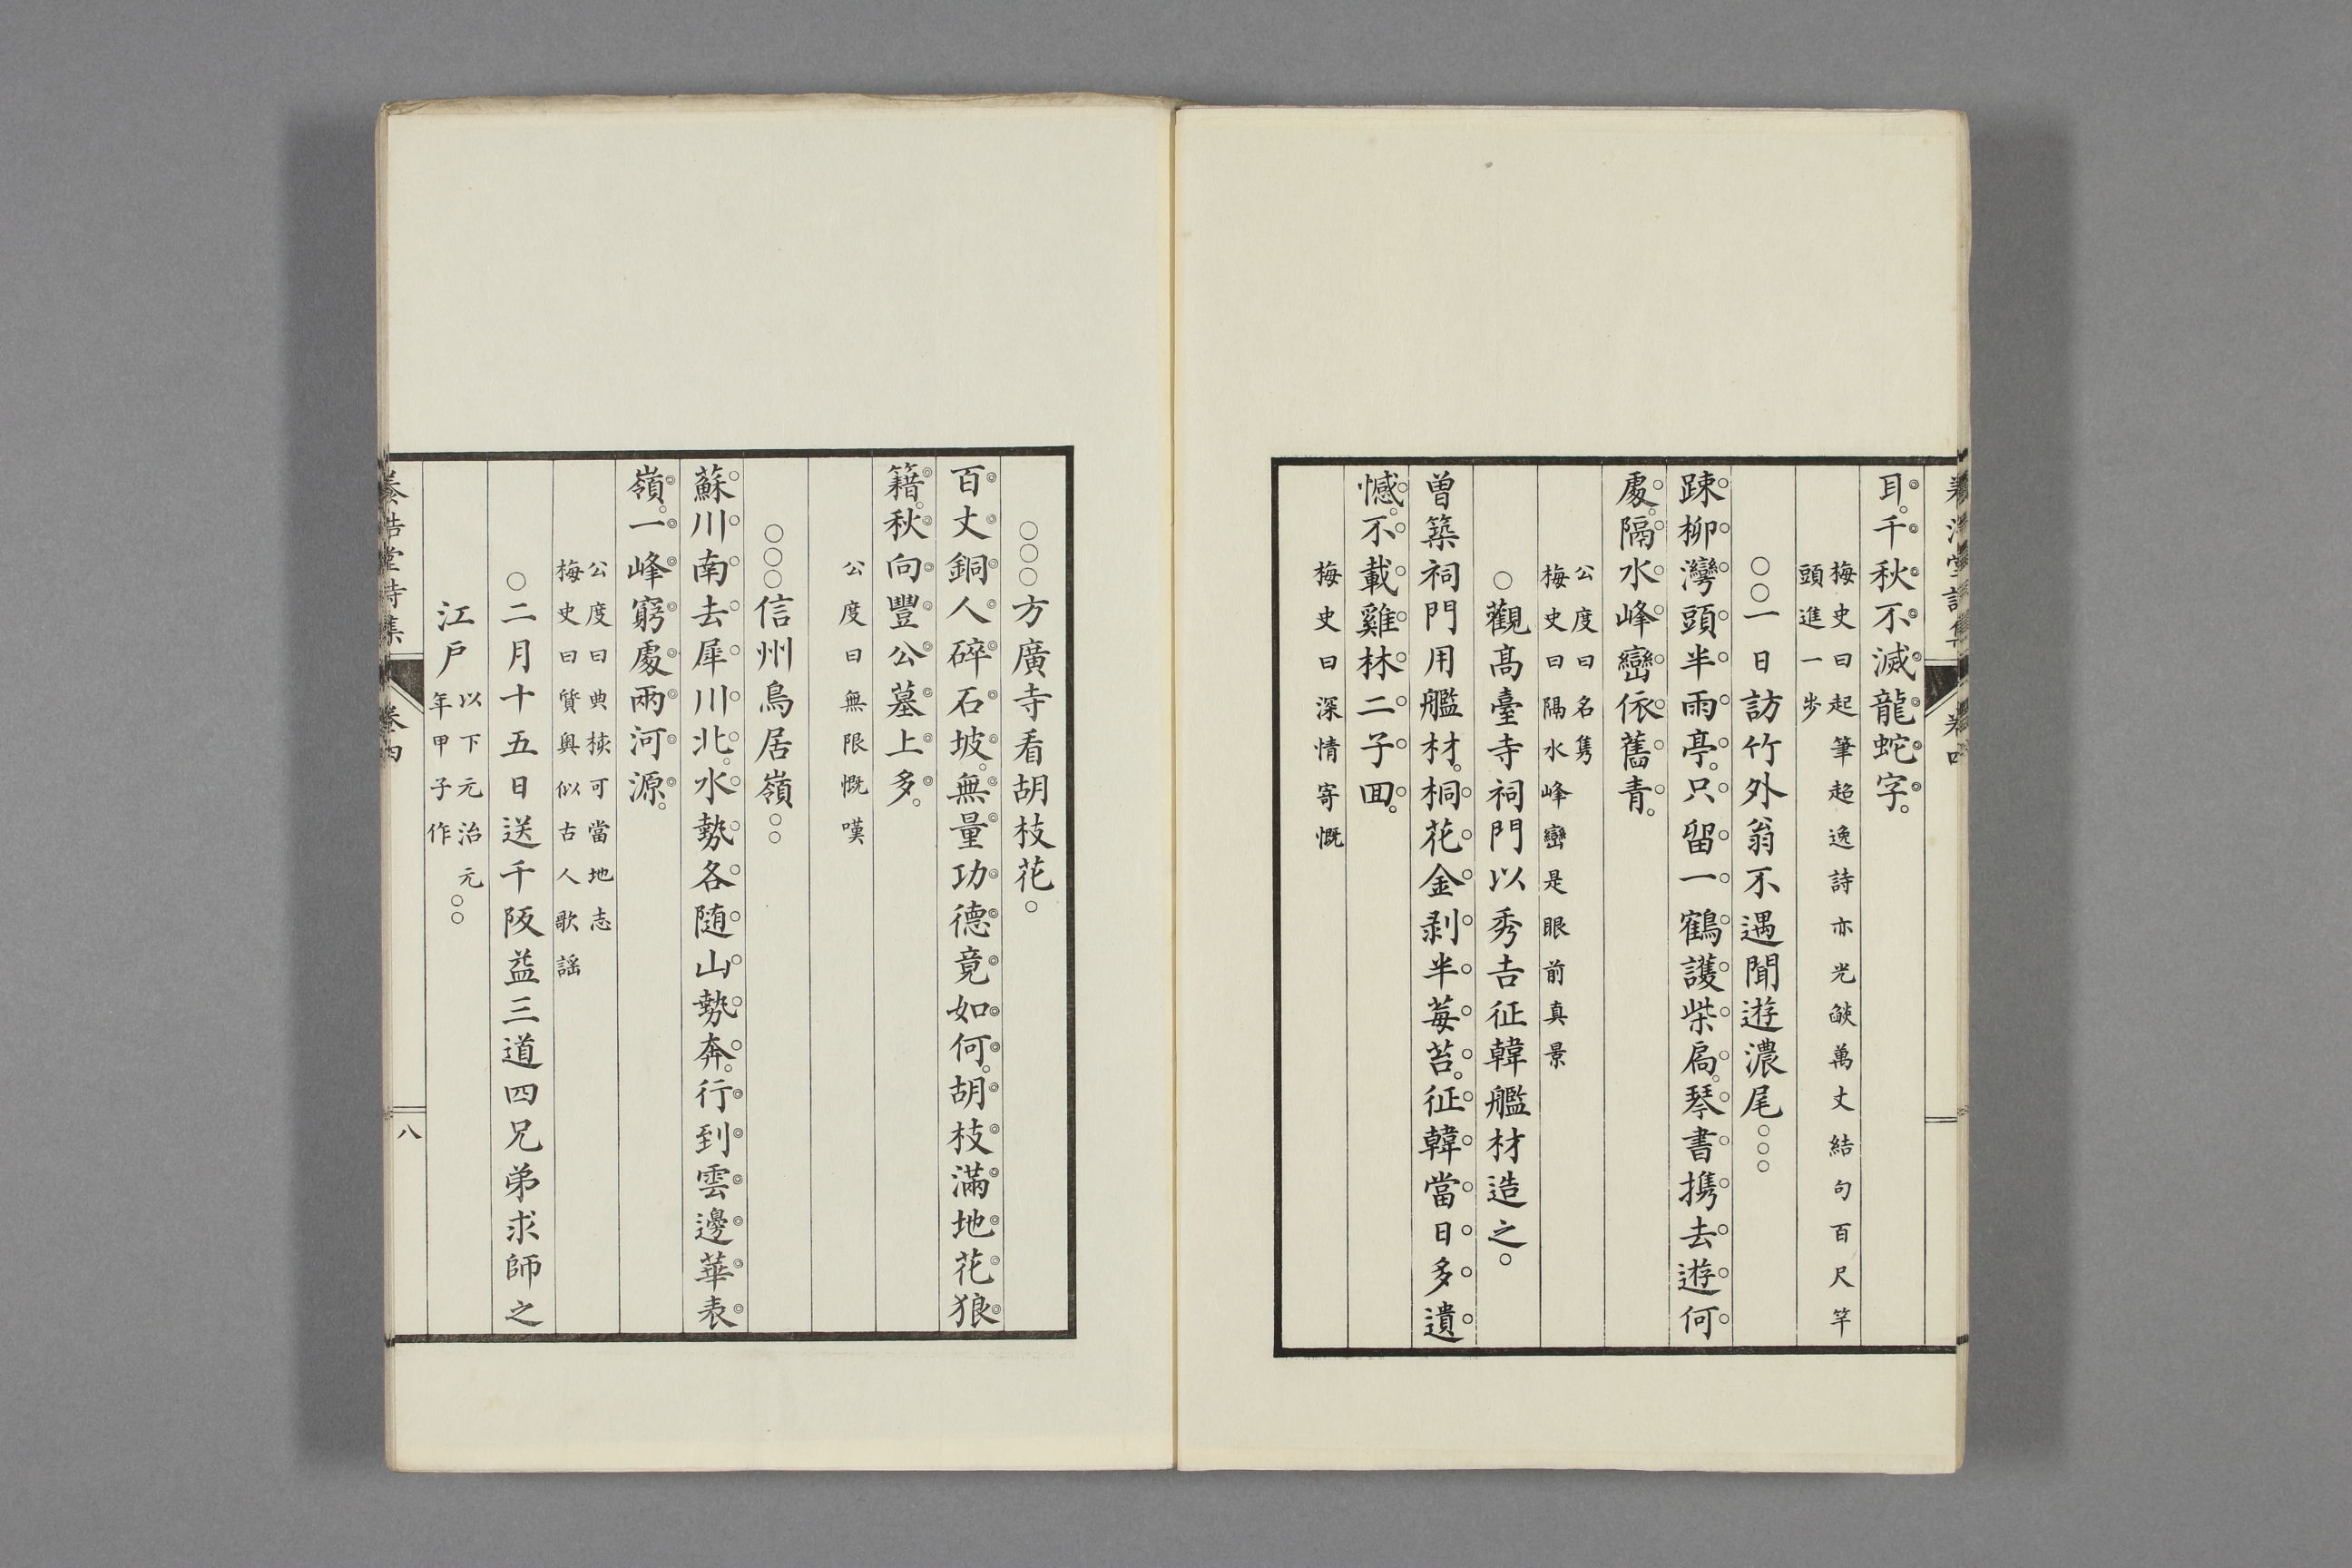 耳。千秋不滅龍蛇字。
梅史曰起筆超逸詩亦光燄萬丈結句百尺竿
頭進一步
○○一日訪竹外翁不遇聞遊濃尾○○○
踈柳灣頭半雨亭。只留一鶴護柴扃。琴書携去遊何
處。隔水峰巒依舊青。
公度曰名雋
梅史曰隔水峰巒是眼前真景
○觀高臺寺祠門以秀吉征韓艦材造之○
曾築祠門用艦材。桐花金剥半莓苔。征韓當日多遺
憾。不載雞林二子回。
梅史曰深情寄慨
○○○方廣寺看胡枝花○
百丈銅人碎石坡。無量功德竟如何。胡枝滿地花狼
籍。秋向豐公墓上多。
公度曰無限慨嘆
○○○信州鳥居嶺○○
蘇川南去犀川北。水勢各随山勢奔。行到雲邊華表
嶺。一峰窮處兩河源。
公度曰典核可當地志
梅史曰質奧似古人歌謡
○二月十五日送千阪益三道四兄弟求師之
江戸以下元治元年甲子作○○
養浩堂詩集 卷四 八